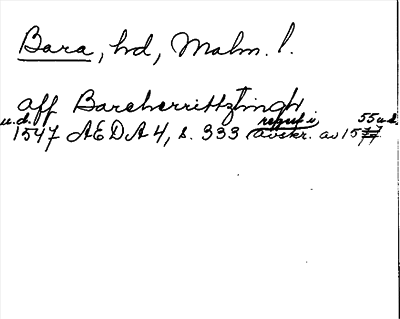 Bara, hd, Malm. l.
aff Bareherrittztingh
u.d. regest i 55 u.d.
1547 AEDA 4, s. 333 (avskr. av 15